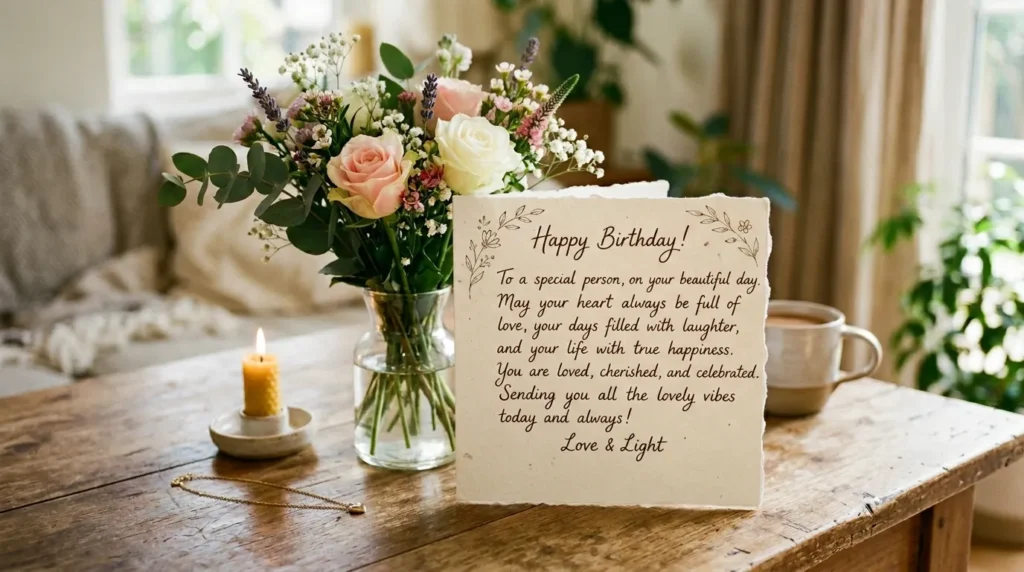 Happy Birthday!
To a special person, on your beautiful day.
May your heart always be full of
love, your days filled with laughter,
and your life with true happiness.
You are loved, cherished, and celebrated.
Sending you all the lovely vibes
today and always!
Love & Light